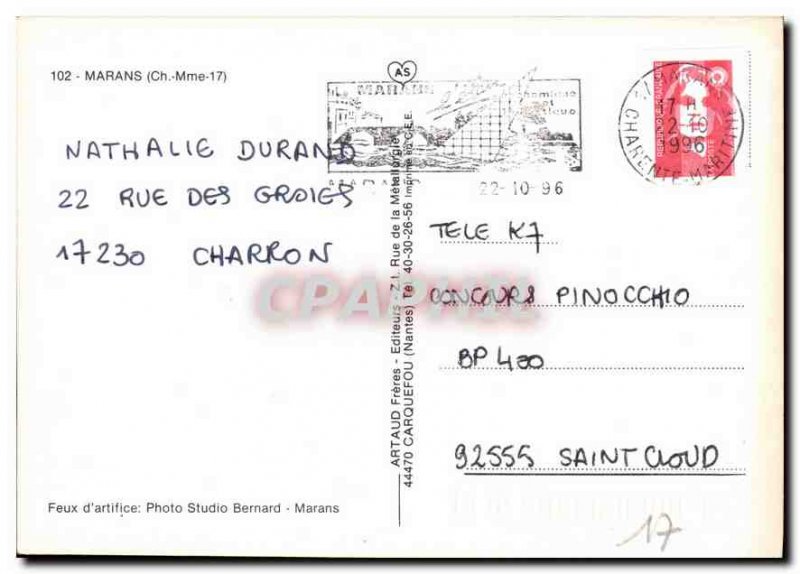 102 - MARANS (Ch.-Mme-17)
NATHALIE DURAND
22 RUE DES GROIES
17230 CHARRON
Feux d'artifice: Photo Studio Bernard - Marans
ARTAUD Frères - Editeurs - Z.I. Rue de la Métallurgie
44470 CARQUEFOU (Nantes) Tél. 40-30-26-56 Imprimé en C.E.E.
AS
MARANS
22-10-96
17 H
22-10
1996
CHARENTE-MARITIME
TELE K7
CONCOURS PINOCCHIO
BP 400
92555 SAINT CLOUD
17
CPAPHIL